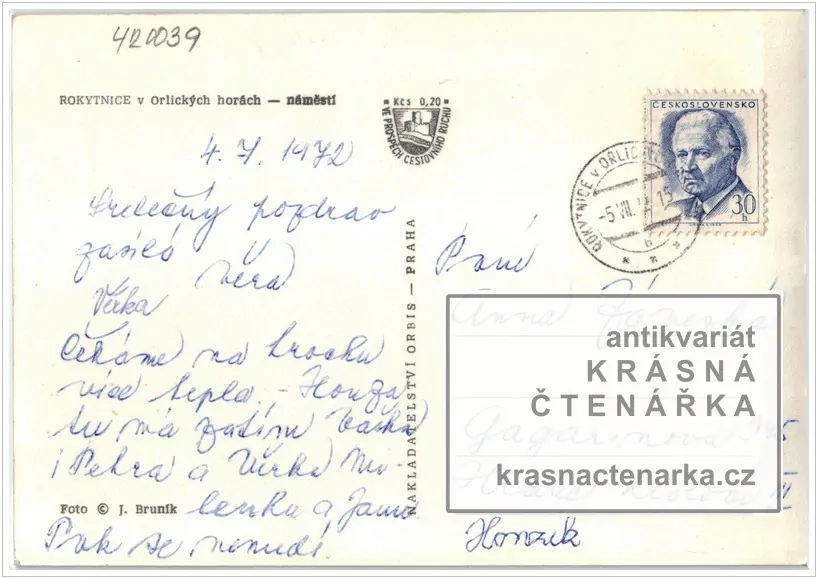 420039
ROKYTNICE v Orlických horách — náměstí
Kčs 0,20
VE PROSPĚCH CESTOVNÍHO RUCHU
ČESKOSLOVENSKO
30 h
ROKYTNICE v ORLIC
-5.VII. 15
h
4. 7. 1972
Srdečný pozdrav
zasílá Věra
Věrka
Čekáme na trochu
více tepla. - Honza
tu má zatím
i Petra a Věrka Mi-
lenku a Janu.
Pak se nenudí.
Foto © J. Bruník
NAKLADATELSTVÍ ORBIS — PRAHA
Paní
Anna
Gagarinova
Hradec Králové III
Honzík
antikvariát
KRÁSNÁ
ČTENÁŘKA
krasnactenarka.cz